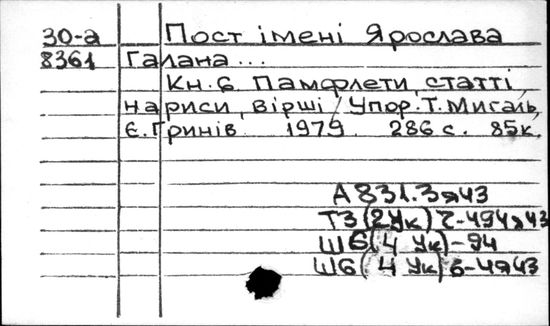 30-а Пост імені Ярослава
8361 Галана...
Кн. 6. Памфлети, статті,
нариси, вірші / Упор. Т. Мигаль,
Є. Гринів 1979. 286 с. 85к.
А 831.3я43
Т3(2Ук)7-494я43
Ш6(4 Ук)-94
Ш6(4 Ук)6-4я43